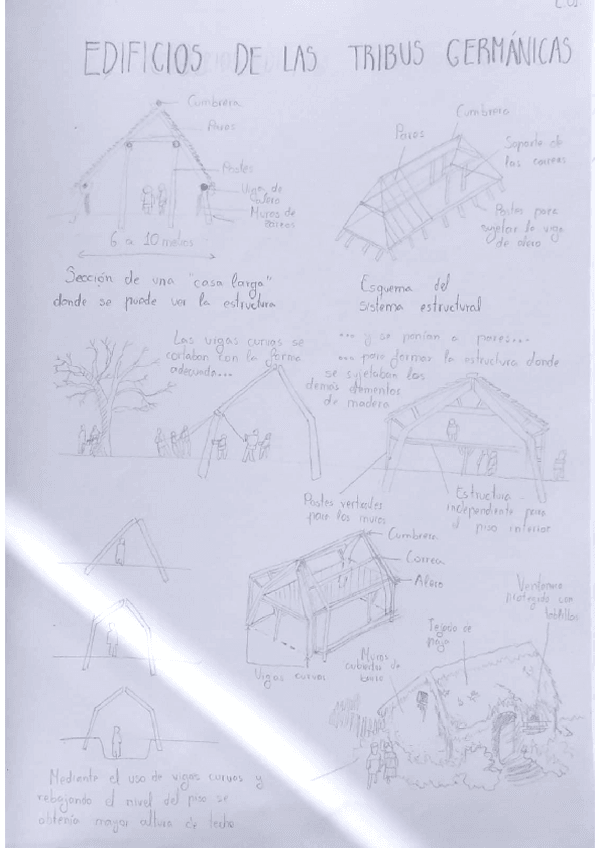 EDIFICIOS DE LAS TRIBUS GERMÁNICAS
Cumbrera
Pares
Postes
Viga de
alero
Muros de
6 a 10 metros
Sección de una "casa larga"
donde se puede ver la estructura
Cumbrera
Pares
Soporte de
las correas
Postes para
sujetar la viga
de alero
Esquema del
sistema estructural
Las vigas curvas se
cortaban con la forma
adecuada...
... y se ponían a pares...
... para formar la estructura donde
se sujetaban los
demás elementos
de madera
Postes verticales
para los muros
Estructura
independiente para
el piso interior
Cumbrera
Correa
Alero
Vigas curvas
Muros
cubiertos de
barro
Tejado de
paja
Ventana
protegida con
tablillas
Mediante el uso de vigas curvas y
rebajando el nivel del piso se
obtenía mayor altura de techo